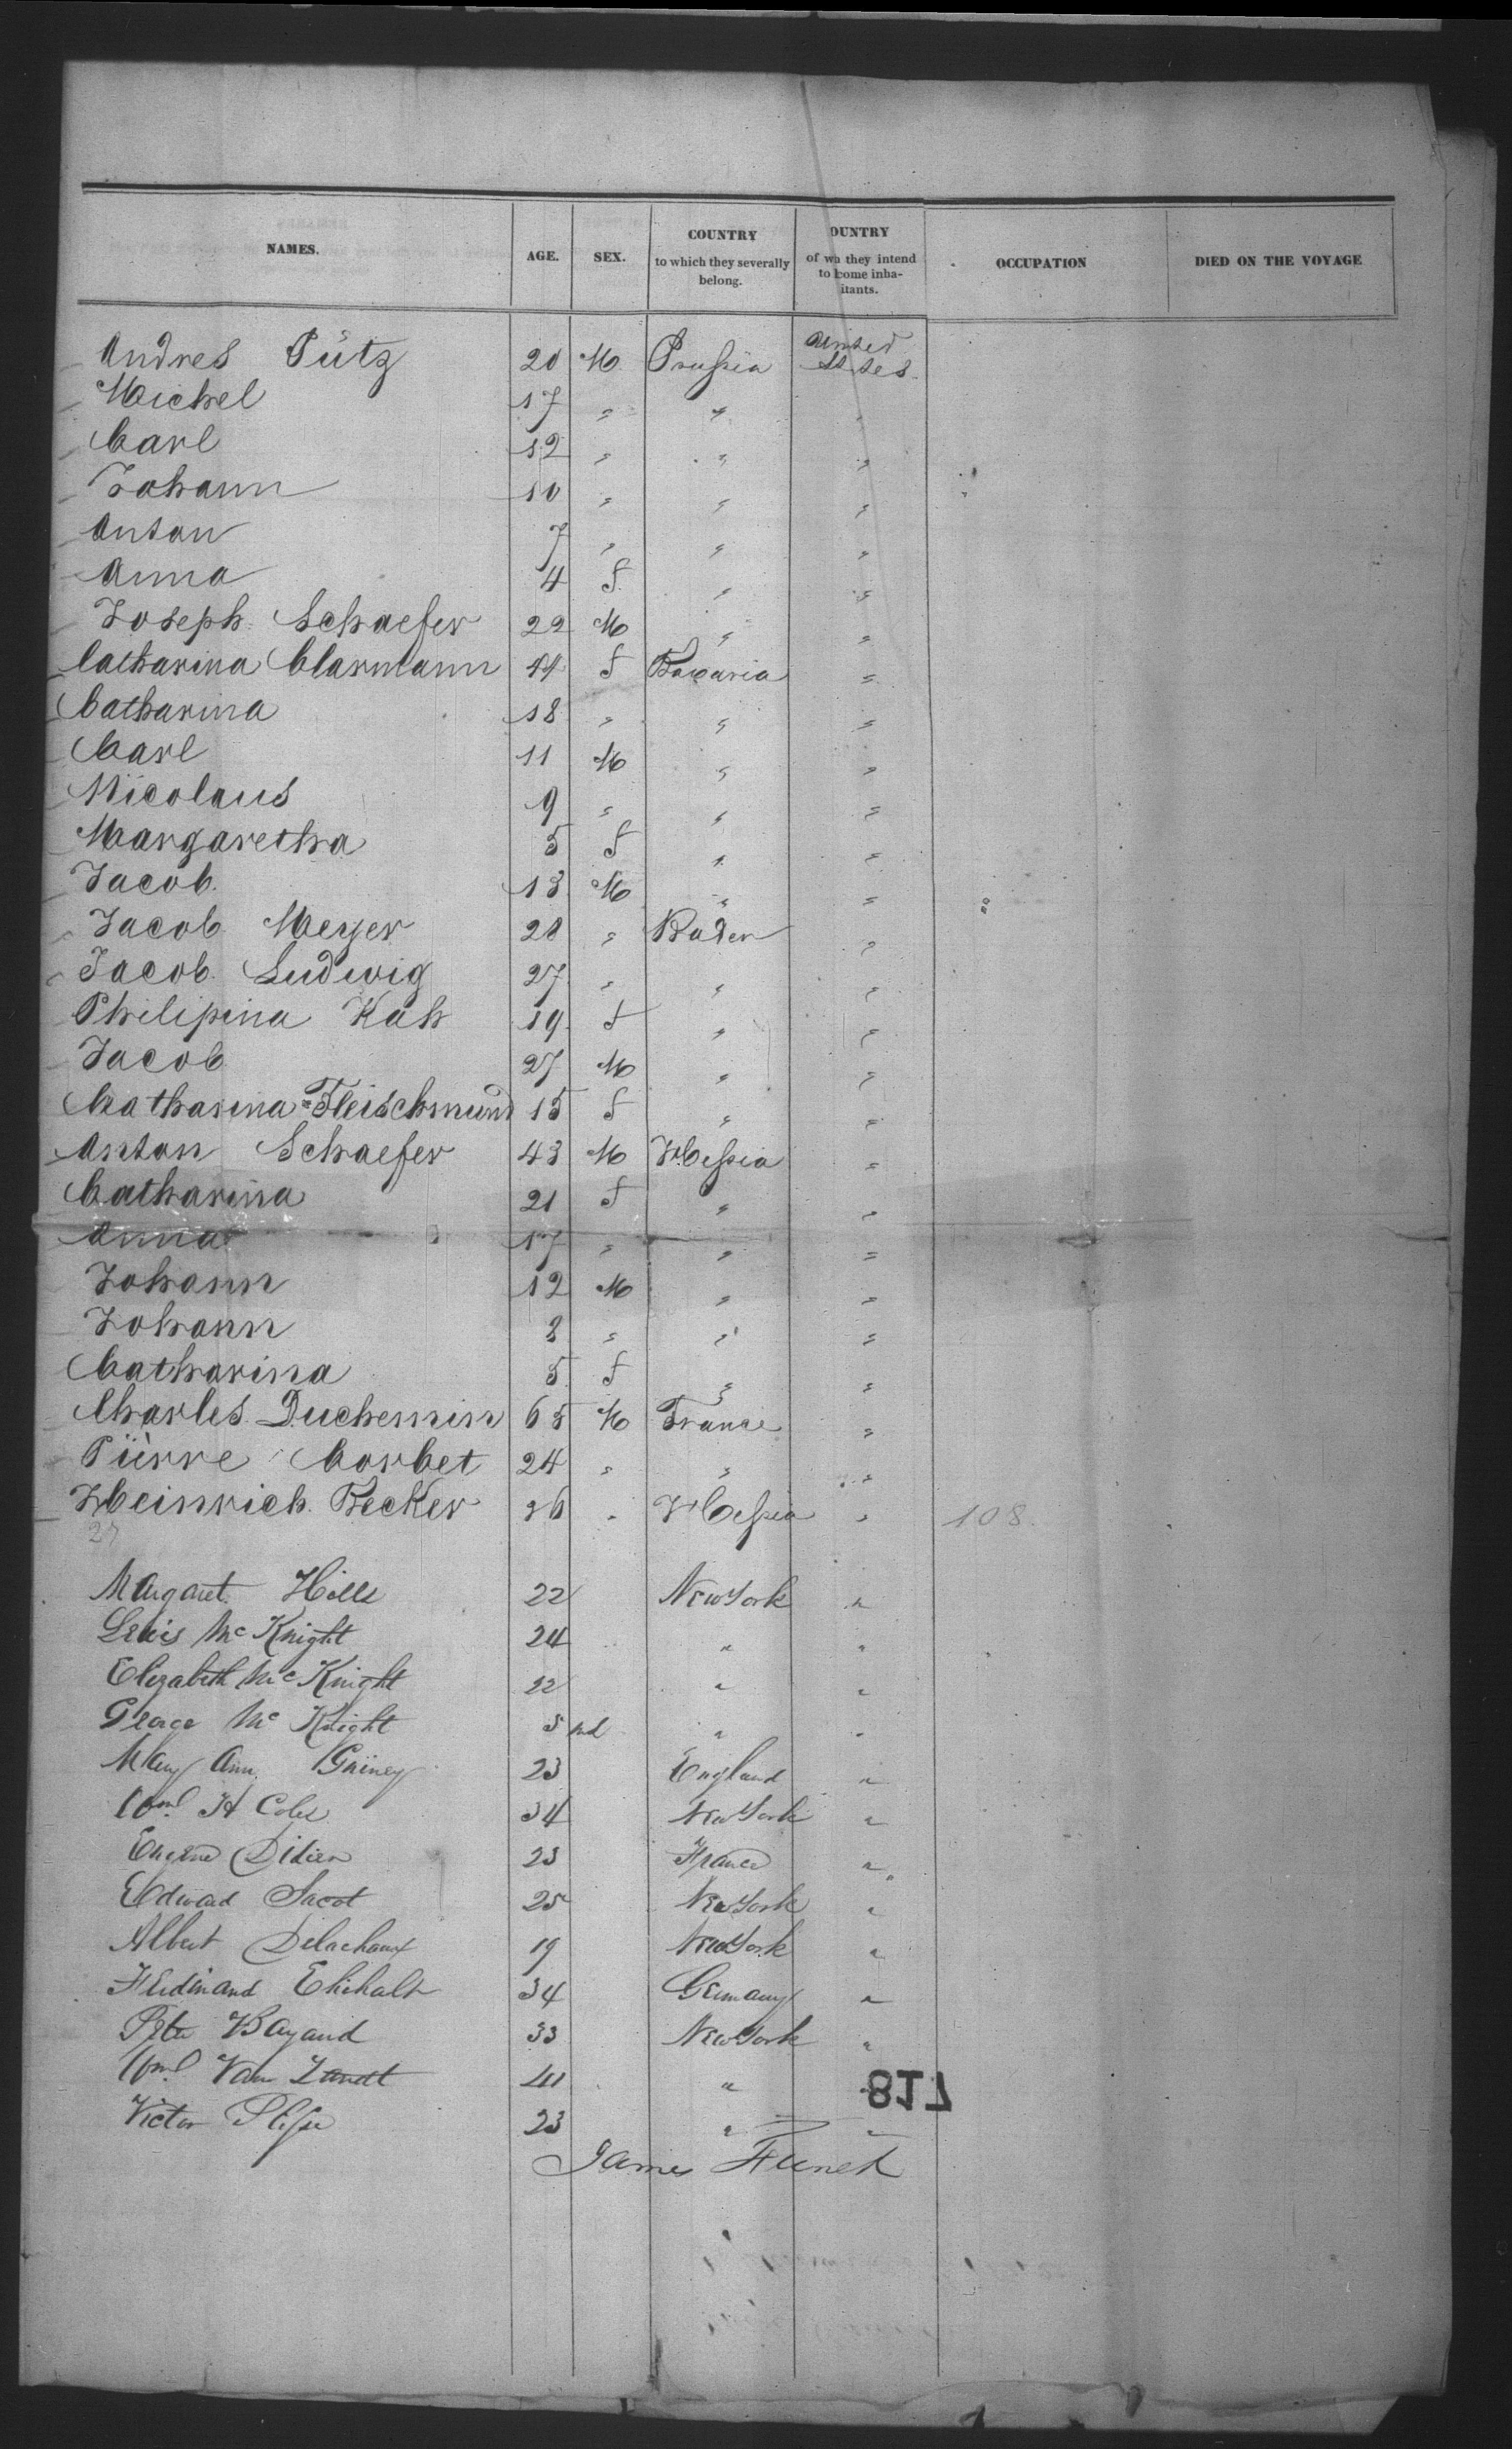 NAMES. AGE. SEX. COUNTRY to which they severally belong. OUNTRY of wh they intend to become inha-itants. OCCUPATION DIED ON THE VOYAGE
Andres Pütz 20 M. Prussia United States
Michel 17 " " "
Carl 12 " " "
Johann 10 " " "
Anton 7 " " "
Anna 4 F " "
Joseph Schaefer 22 M " "
Catharina Clarmann 44 F Bavaria "
Catharina 18 " " "
Carl 11 M " "
Nicolaus 9 " " "
Margaretha 5 F " "
Jacob. 13 M " "
Jacob Meyer 28 " Baden "
Jacob. Ludwig 27 " " "
Philipina Kah 19 F " "
Jacob 27 M " "
Catharina Fleischmund 15 F " "
Anton Schaefer 43 M Hessia "
Catharina 21 F " "
Anna 17 " " "
Johann 12 M " "
Johann 8 " " "
Catharina 5 F " "
Charles Duchemin 65 M France "
Pierre Corbet 24 " " "
Heinrich Becker 26 " Hessia " 108.
27
Margaret Hills 22 New York "
Lewis McKnight 24 " "
Elizabeth McKnight 22 " "
George McKnight 5 " "
Mary Ann 23 England "
Wm H Coles 34 New York "
Eugene Didier 23 France "
Edward Jacot 25 New York "
Albert Delachaux 19 New York "
Ferdinand 34 Germany "
Peter Bayaud 33 New York "
Wm Van Zandt 41 " "
817
Victor 23 " "
James Funck